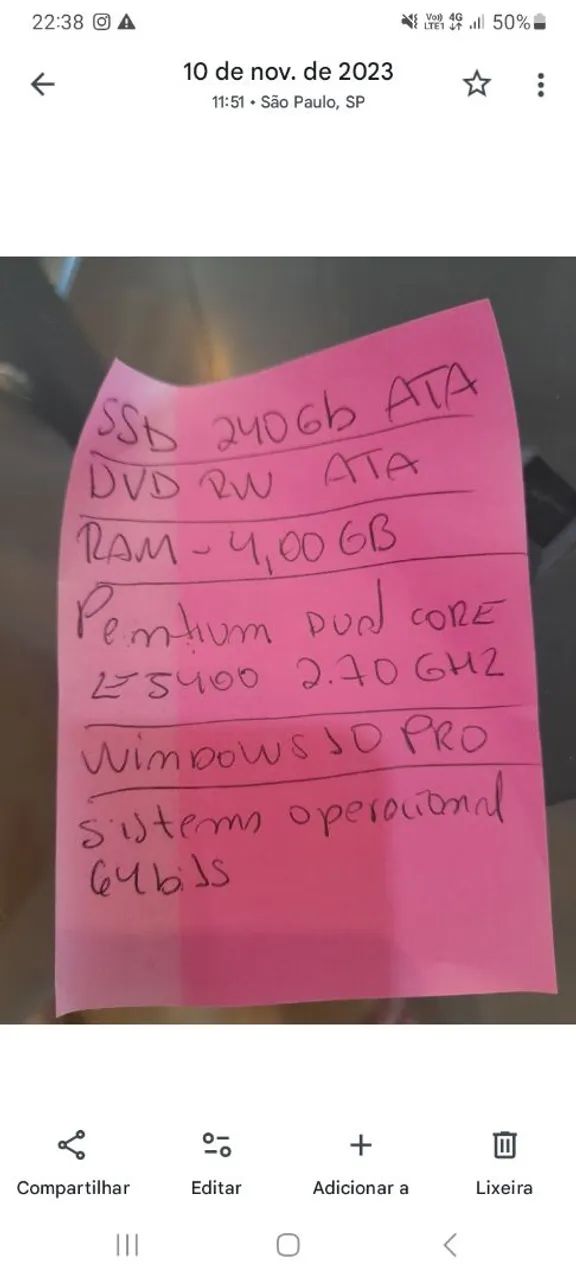 22:38
Vo)) 4G
LTE1
50%
10 de nov. de 2023
11:51 • São Paulo, SP
SSD 240Gb ATA
DVD RW ATA
RAM - 4,00 GB
Pentium DUAl CORE
E5400 2.70 GHZ
WINDOWS 10 PRO
sistema operacional
64bits
Compartilhar
Editar
Adicionar a
Lixeira